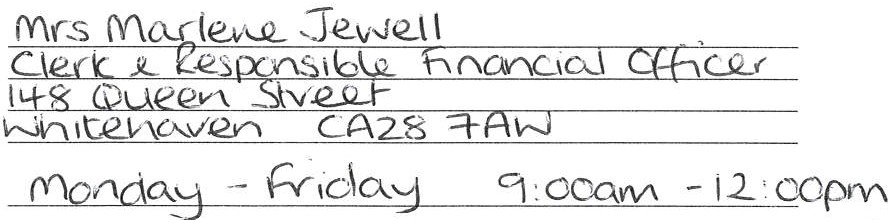 Mrs Marlene Jewell
Clerk & Responsible Financial Officer
148 Queen Street
Whitehaven CA28 7AW
Monday - Friday 9:00am - 12:00pm